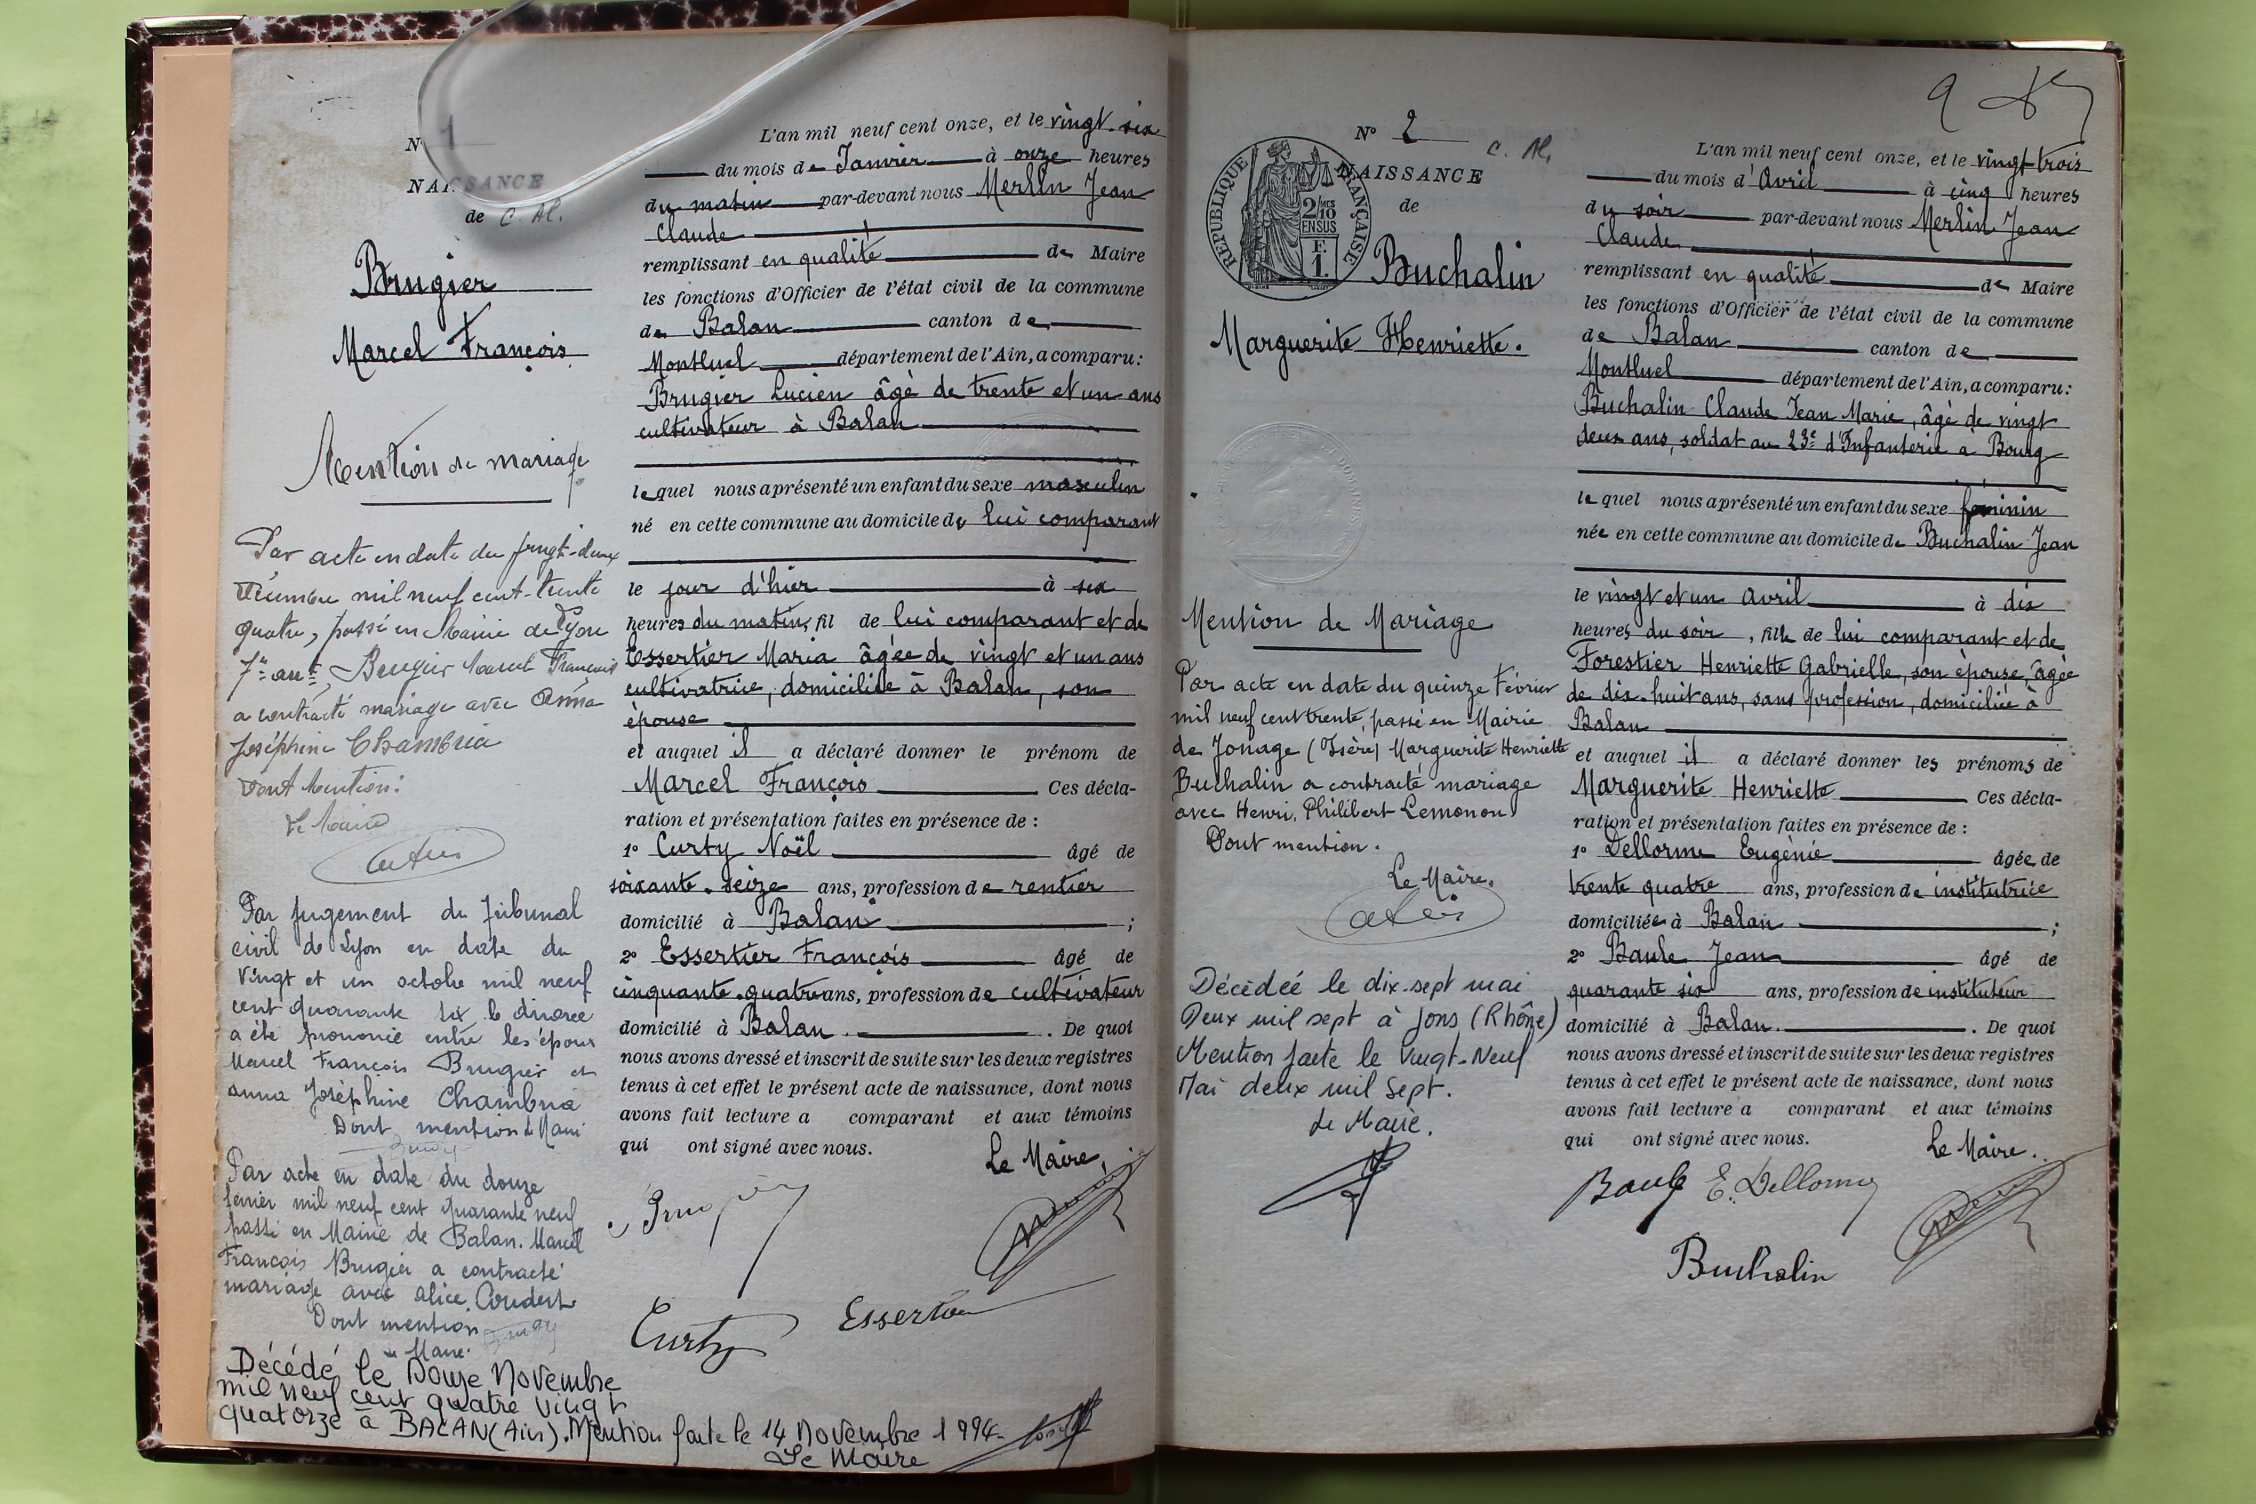 N° 1
NAISSANCE
de C. Al.
Brugier
Marcel François
Mention de mariage
Par acte en date du vingt-deux
Décembre mil neuf cent-trente
quatre, passé en Mairie de Lyon
7me art, Brugier Marcel François
a contracté mariage avec Anna
Joséphine Chambria
Dont Mention:
Le Maire
Par jugement du Tribunal
civil de Lyon en date du
vingt et un octobre mil neuf
cent quarante six le divorce
a été prononcé entre les époux
Marcel François Brugier et
anna Joséphine Chambria
Dont mention le Maire
Par acte en date du douze
février mil neuf cent quarante neuf
passé en Mairie de Balan. Marcel
François Brugier a contracté
mariage avec alice Coudert
Dont mention
le Maire.
Décédé le Douze Novembre
mil neuf cent quatre vingt
quatorze à BALAN (Ain). Mention faite le 14 Novembre 1994-
Le Maire
L'an mil neuf cent onze, et le vingt-six
du mois de Janvier à onze heures
du matin par-devant nous Merlin Jean
Claude
remplissant en qualité de Maire
les fonctions d'Officier de l'état civil de la commune
de Balan canton de
Montluel département de l'Ain, a comparu:
Brugier Lucien âgé de trente et un ans
cultivateur à Balan
lequel nous a présenté un enfant du sexe masculin
né en cette commune au domicile de lui comparant
le jour d'hier à six
heures du matin, fil de lui comparant et de
Essertier Maria âgée de vingt et un ans
cultivatrice, domiciliée à Balan, son
épouse
et auquel il a déclaré donner le prénom de
Marcel François Ces décla-
ration et présentation faites en présence de :
1° Curty Noël âgé de
soixante-seize ans, profession de rentier
domicilié à Balan ;
2° Essertier François âgé de
cinquante-quatre ans, profession de cultivateur
domicilié à Balan . De quoi
nous avons dressé et inscrit de suite sur les deux registres
tenus à cet effet le présent acte de naissance, dont nous
avons fait lecture a comparant et aux témoins
qui ont signé avec nous.
Le Maire,
Brugier
Curty Essertier
N° 2 C. Al.
NAISSANCE
de
RÉPUBLIQUE FRANÇAISE
2/10 MES
EN SUS
F.
1.
Buchalin
Marguerite Henriette.
Mention de Mariage
Par acte en date du quinze Février
mil neuf cent trente, passé en Mairie
de Jonage (Isère) Marguerite Henriette
Buchalin a contracté mariage
avec Henri, Philibert Lemonon
Dont mention.
Le Maire.
Décédée le dix-sept mai
Deux mil sept à Jons (Rhône)
Mention faite le Vingt-Neuf
Mai deux mil sept.
Le Maire.
L'an mil neuf cent onze, et le vingt-trois
du mois d'Avril à cinq heures
du soir par-devant nous Merlin Jean
Claude
remplissant en qualité de Maire
les fonctions d'Officier de l'état civil de la commune
de Balan canton de
Montluel département de l'Ain, a comparu:
Buchalin Claude Jean Marie, âgé de vingt
deux ans, soldat au 23e d'Infanterie a Bourg
lequel nous a présenté un enfant du sexe féminin
née en cette commune au domicile de Buchalin Jean
le vingt et un Avril à dix
heures du soir, fille de lui comparant et de
Forestier Henriette Gabrielle, son épouse, âgée
de dix-huit ans, sans profession, domiciliée à
Balan
et auquel il a déclaré donner les prénoms de
Marguerite Henriette Ces décla-
ration et présentation faites en présence de :
1° Dellorme Eugénie âgée de
trente quatre ans, profession de institutrice
domiciliée à Balan ;
2° Baule Jean âgé de
quarante six ans, profession de instituteur
domicilié à Balan . De quoi
nous avons dressé et inscrit de suite sur les deux registres
tenus à cet effet le présent acte de naissance, dont nous
avons fait lecture a comparant et aux témoins
qui ont signé avec nous.
Le Maire.
Baule E. Dellorme
Buchalin